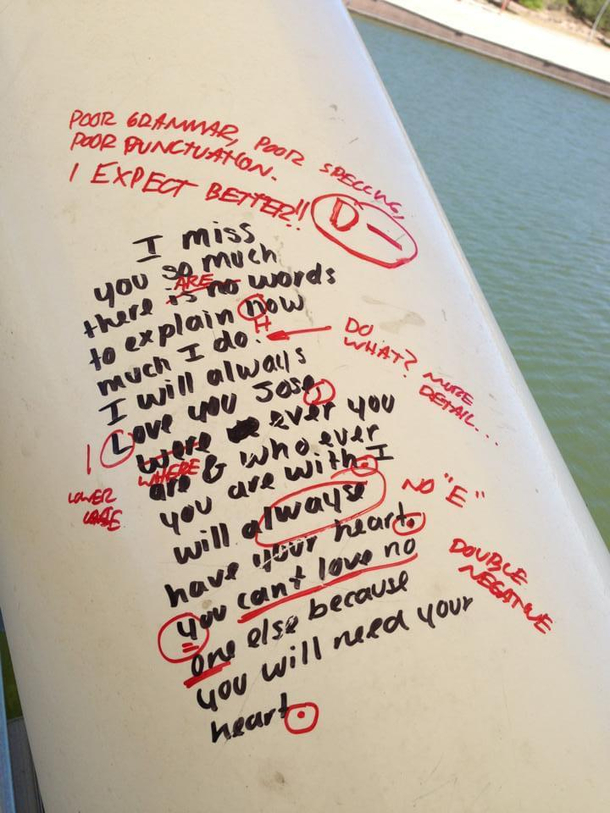 POOR GRAMMAR, POOR SPELLING,
POOR PUNCTUATION.
I EXPECT BETTER!!
D-
I miss
you so much
ARE
there is no words
to explain now
H
much I do.
DO
WHAT? MORE
DETAIL...
I will always
Love you Jose,
l
LOWER
CASE
were ever you
WHERE
are & who ever
you are with. I
will alwayse
NO "E"
have your heart.
you cant love no
DOUBLE
NEGATIVE
one else because
you will need your
heart.